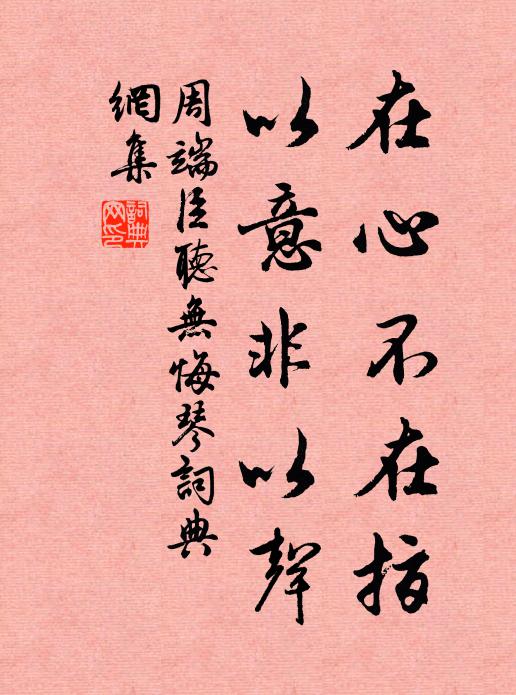 在心不在指
以意非以聲
周端臣聽無悔琴詞典
網集
詞典網印